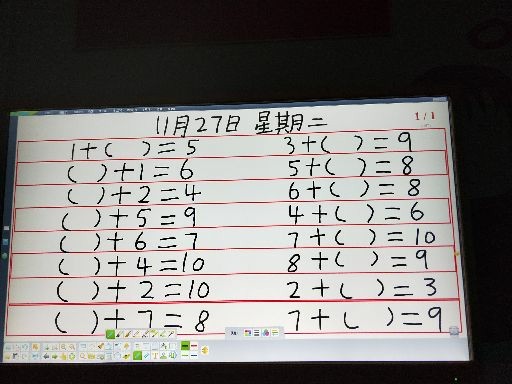 11月27日 星期二
1/1
1+( )=5 3+( )=9
( )+1=6 5+( )=8
( )+2=4 6+( )=8
( )+5=9 4+( )=6
( )+6=7 7+( )=10
( )+4=10 8+( )=9
( )+2=10 2+( )=3
( )+7=8 7+( )=9